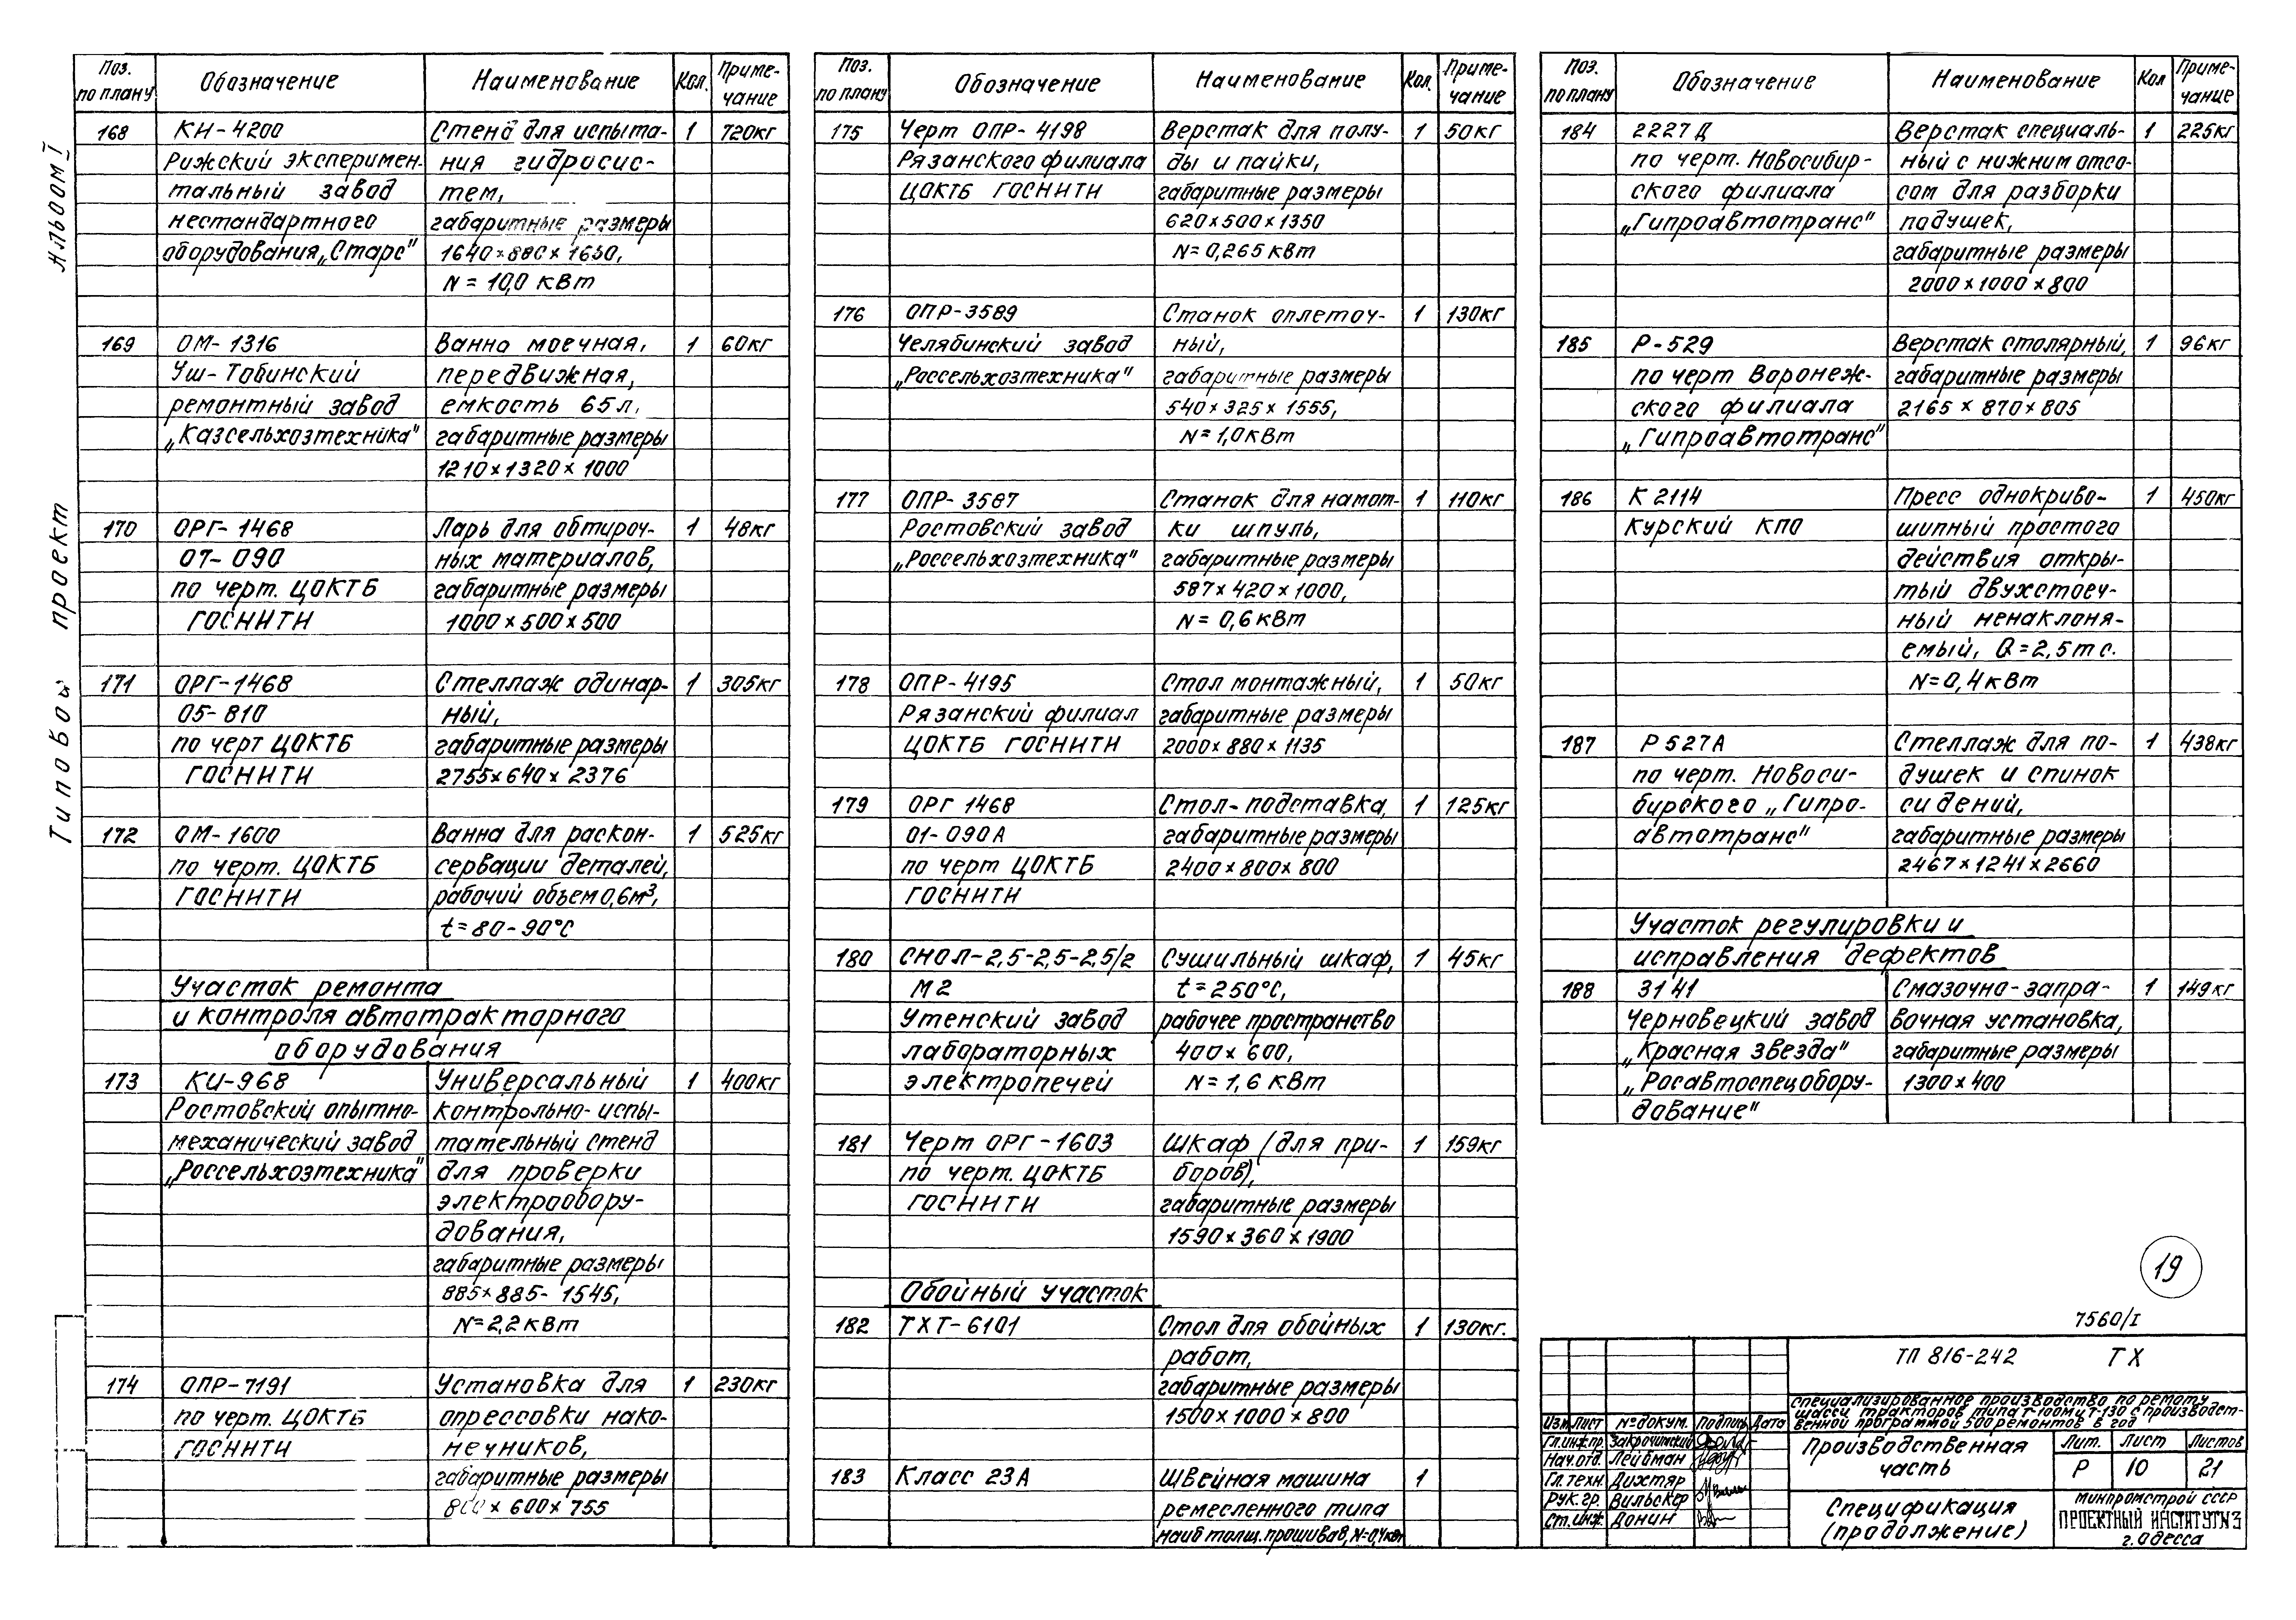 Альбом I
Типовой проект
Поз. по плану Обозначение Наименование Кол. Примечание
168 КИ-4200 Стенд для испыта- 1 720кг
Рижский эксперимен- ния гидросис-
тальный завод тем,
нестандартного габаритные размеры
оборудования „Старс" 1640×880×1650,
N = 10,0 кВт
169 ОМ-1316 Ванна моечная, 1 60кг
Уш-Тобинский передвижная,
ремонтный завод емкость 65л,
„Казсельхозтехника" габаритные размеры
1210×1320×1000
170 ОРГ-1468 Ларь для обтироч- 1 48кг
07-090 ных материалов,
по черт. ЦОКТБ габаритные размеры
ГОСНИТИ 1000×500×500
171 ОРГ-1468 Стеллаж одинар- 1 305кг
05-810 ный,
по черт ЦОКТБ габаритные размеры
ГОСНИТИ 2755×640×2376
172 ОМ-1600 Ванна для раскон- 1 525кг
по черт. ЦОКТБ сервации деталей,
ГОСНИТИ рабочий объем 0,6м³,
t=80-90°С
Участок ремонта
и контроля автотракторного
оборудования
173 КИ-968 Универсальный 1 400кг
Ростовский опытно- контрольно-испы-
механический завод тательный стенд
„Россельхозтехника" для проверки
электрообору-
дования,
габаритные размеры
885×885-1545,
N=2,2кВт
174 ОПР-7191 Установка для 1 230кг
по черт. ЦОКТБ опрессовки нако-
ГОСНИТИ нечников,
габаритные размеры
800×600×755
Поз. по плану Обозначение Наименование Кол. Примечание
175 Черт ОПР-4198 Верстак для полу- 1 50кг
Рязанского филиала ды и пайки,
ЦОКТБ ГОСНИТИ габаритные размеры
620×500×1350
N=0,265кВт
176 ОПР-3589 Станок оплеточ- 1 130кг
Челябинский завод ный,
„Россельхозтехника" габаритные размеры
540×325×1555,
N=1,0кВт
177 ОПР-3587 Станок для намот- 1 110кг
Ростовский завод ки шпуль,
„Россельхозтехника" габаритные размеры
587×420×1000,
N=0,6кВт
178 ОПР-4195 Стол монтажный, 1 50кг
Рязанский филиал габаритные размеры
ЦОКТБ ГОСНИТИ 2000×880×1135
179 ОРГ 1468 Стол-подставка, 1 125кг
01-090А габаритные размеры
по черт ЦОКТБ 2400×800×800
ГОСНИТИ
180 СНОЛ-2,5-2,5-2,5/2 Сушильный шкаф, 1 45кг
М2 t=250°С,
Утенский завод рабочее пространство
лабораторных 400×600,
электропечей N=1,6 кВт
181 Черт ОРГ-1603 Шкаф (для при- 1 159кг
по черт. ЦОКТБ боров),
ГОСНИТИ габаритные размеры
1590×360×1900
Обойный участок
182 ТХТ-6101 Стол для обойных 1 130кг.
работ,
габаритные размеры
1500×1000×800
183 Класс 23А Швейная машина 1
ремесленного типа
наиб толщ. прошивав, N=0,4квт
Поз. по плану Обозначение Наименование Кол Примечание
184 2227Д Верстак специаль- 1 225кг
по черт. Новосибир- ный с нижним отсо-
ского филиала сом для разборки
„Гипроавтотранс" подушек,
габаритные размеры
2000×1000×800
185 Р-529 Верстак столярный, 1 96кг
по черт Воронеж- габаритные размеры
ского филиала 2165×870×805
„Гипроавтотранс"
186 К 2114 Пресс однокриво- 1 450кг
Курский КПО шипный простого
действия откры-
тый двухстоеч-
ный ненаклоня-
емый, Q=2,5тс.
N=0,4кВт
187 Р527А Стеллаж для по- 1 438кг
по черт. Новоси- душек и спинок
бирского „Гипро- сидений,
автотранс" габаритные размеры
2467×1241×2660
Участок регулировки и
исправления дефектов
188 3141 Смазочно-запра- 1 149кг
Черновецкий завод вочная установка,
„Красная звезда" габаритные размеры
„Росавтоспецобору- 1300×400
дование"
19
7560/I
ТП 816-242 ТХ
специализированное производство по ремонту
шасси тракторов типа Т-100М и Т-130 с производст-
венной программой 500 ремонтов в год
Изм Лист № докум. Подпись Дата
Гл.инж.пр. Закрочимский
Нач.отд. Лейбман
Гл.техн. Дихтяр
Рук.гр. Вильскер
Ст.инж. Донин
Производственная часть
Лит. Лист Листов
Р 10 21
Спецификация
(продолжение)
Минпромстрой СССР
ПРОЕКТНЫЙ ИНСТИТУТ №3
г. Одесса